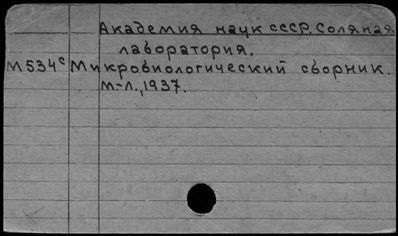 Академия наук СССР. Соляная
лаборатория.
М534с Микробиологический сборник.
М.-Л., 1937.